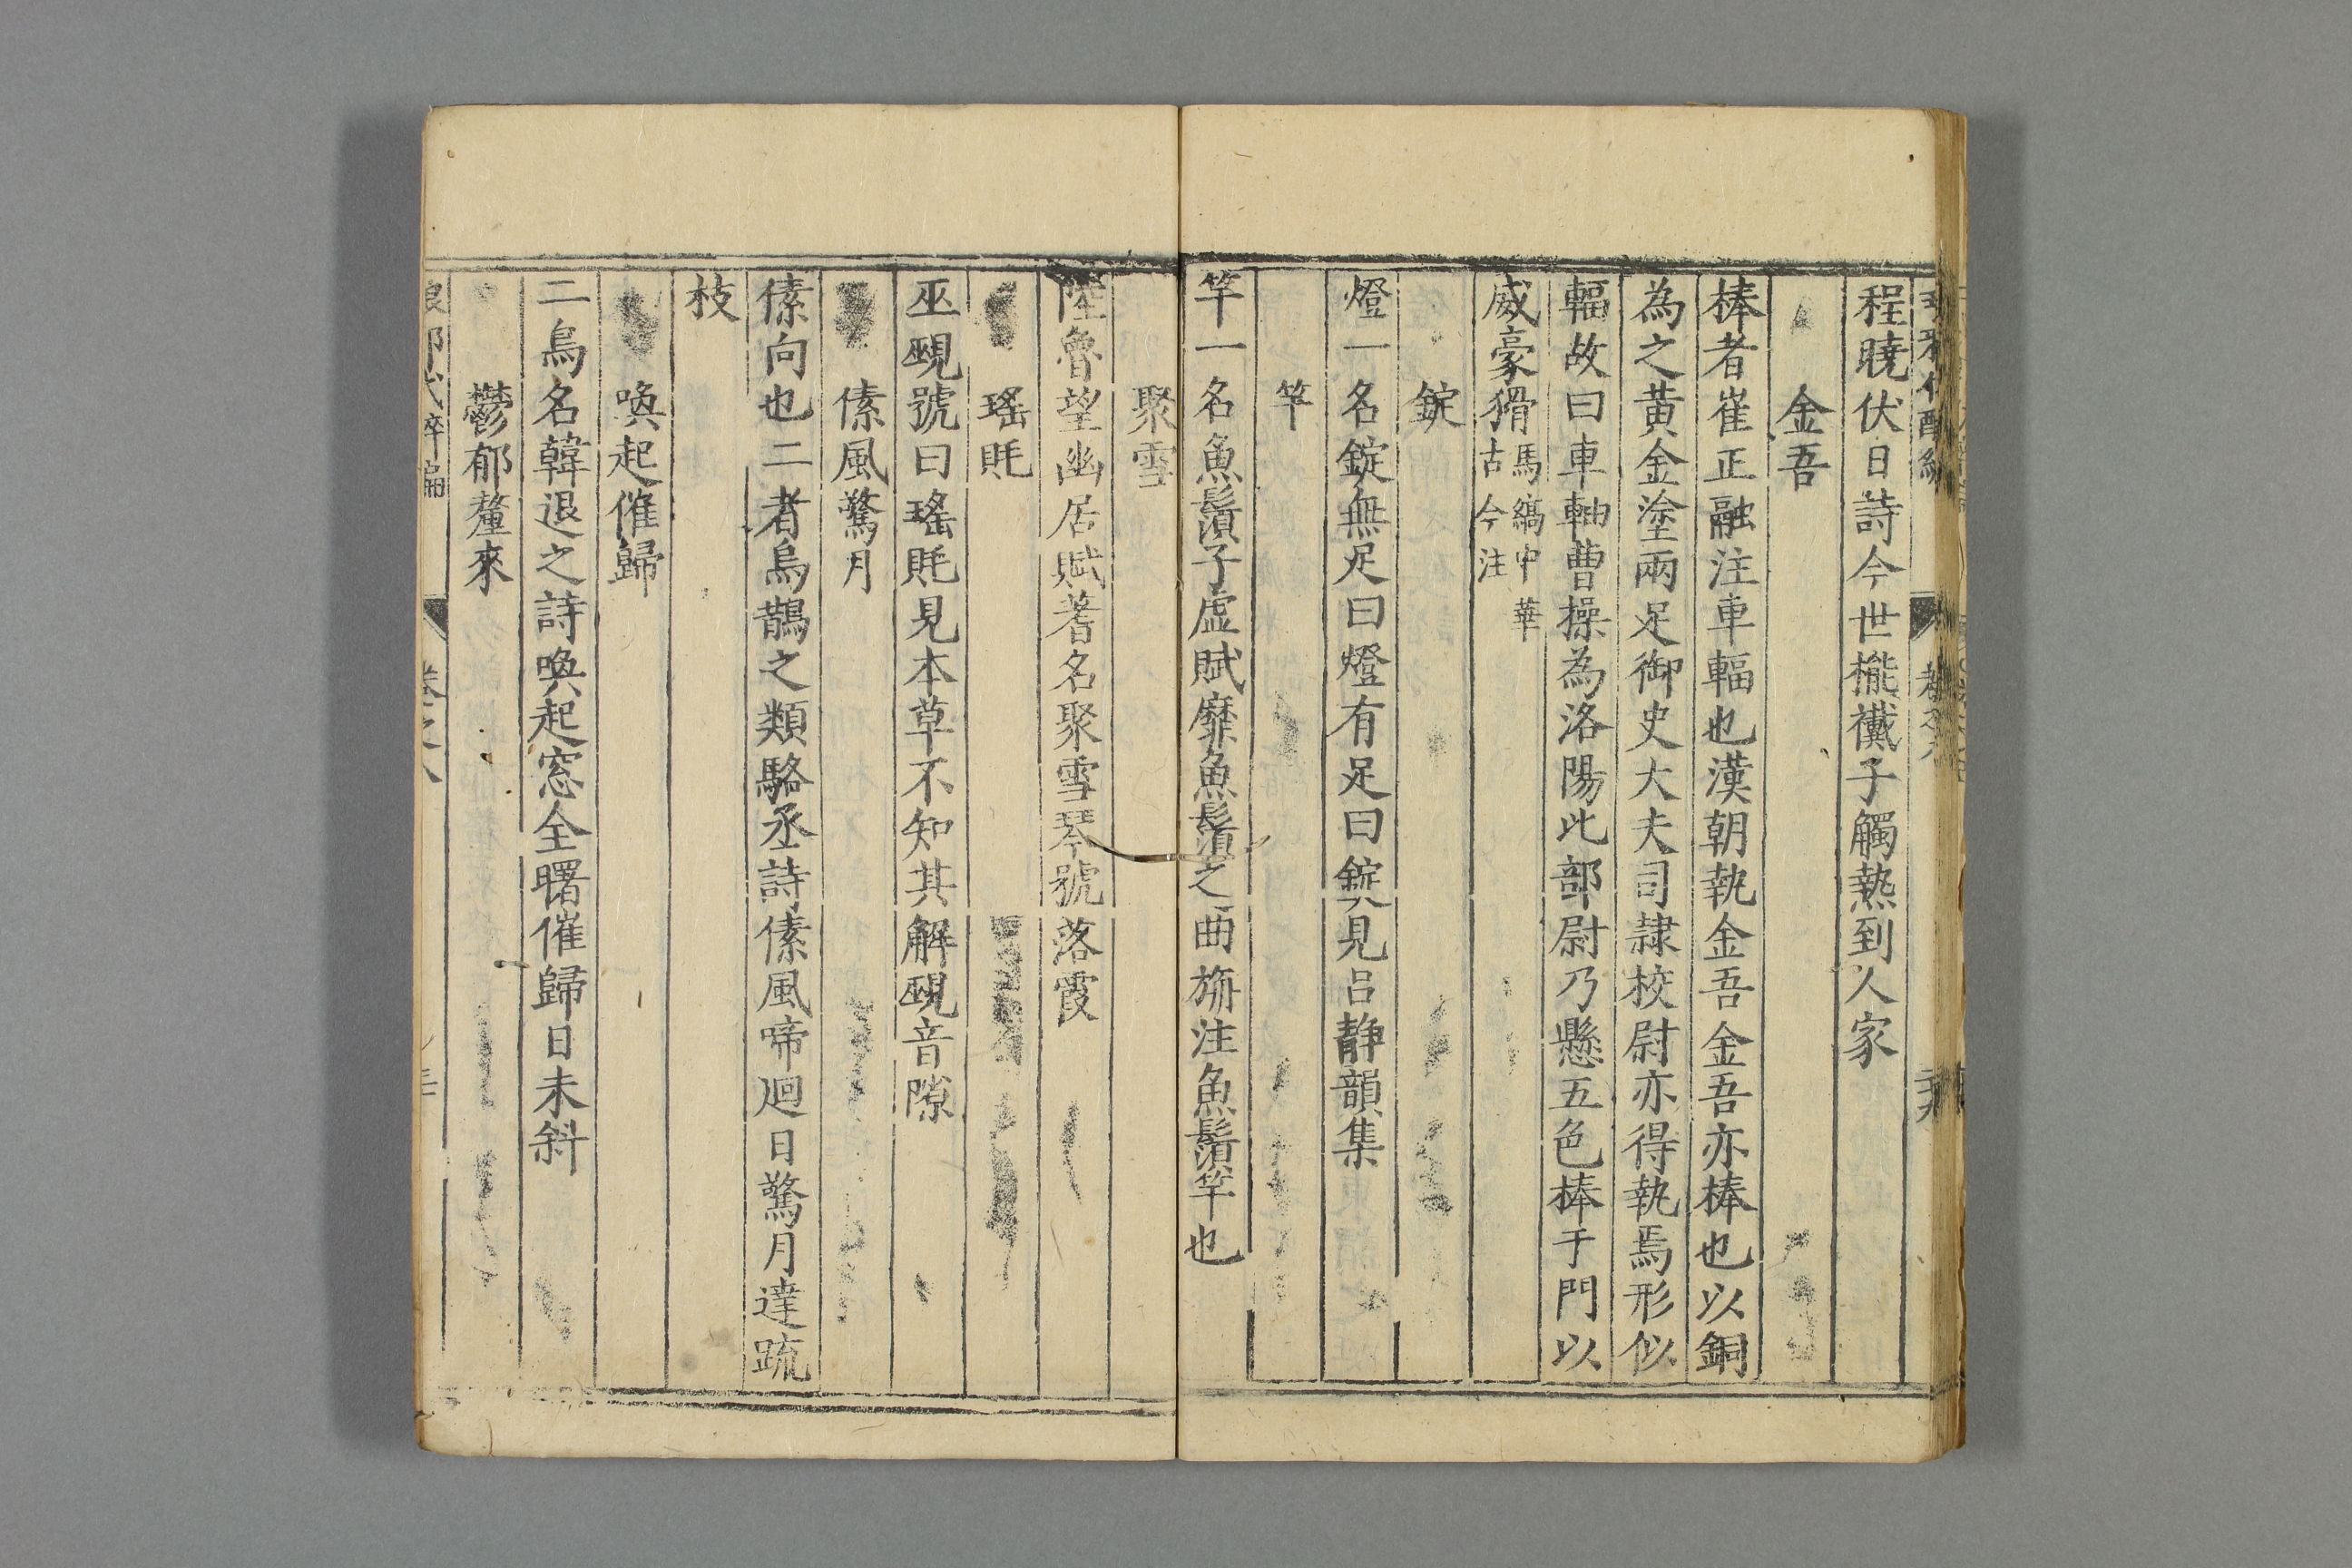 程曉伏日詩今世襱襶子觸熱到人家
金吾
棒者崔正融注車輻也漢朝執金吾金吾亦棒也以銅
為之黃金塗兩足御史大夫司隸校尉亦得執焉形似
輻故曰車軸曹操為洛陽北部尉乃懸五色棒于門以
威豪猾馬縞中華
古今注
錠
燈一名錠無足曰燈有足曰錠見呂靜韻集
竿
竿一名魚鬚子虛賦靡魚鬚之曲旃注魚鬚竿也
聚雪
陸魯望幽居賦蓍名聚雪琴號落霞
瑤毦
巫覡號曰瑤毦見本草不知其解覡音隙
傃風驚月
傃向也二者烏鵲之類駱丞詩傃風啼迴日驚月達疏
枝
喚起催歸
二鳥名韓退之詩喚起窓全曙催歸日未斜
鬱郁釐來